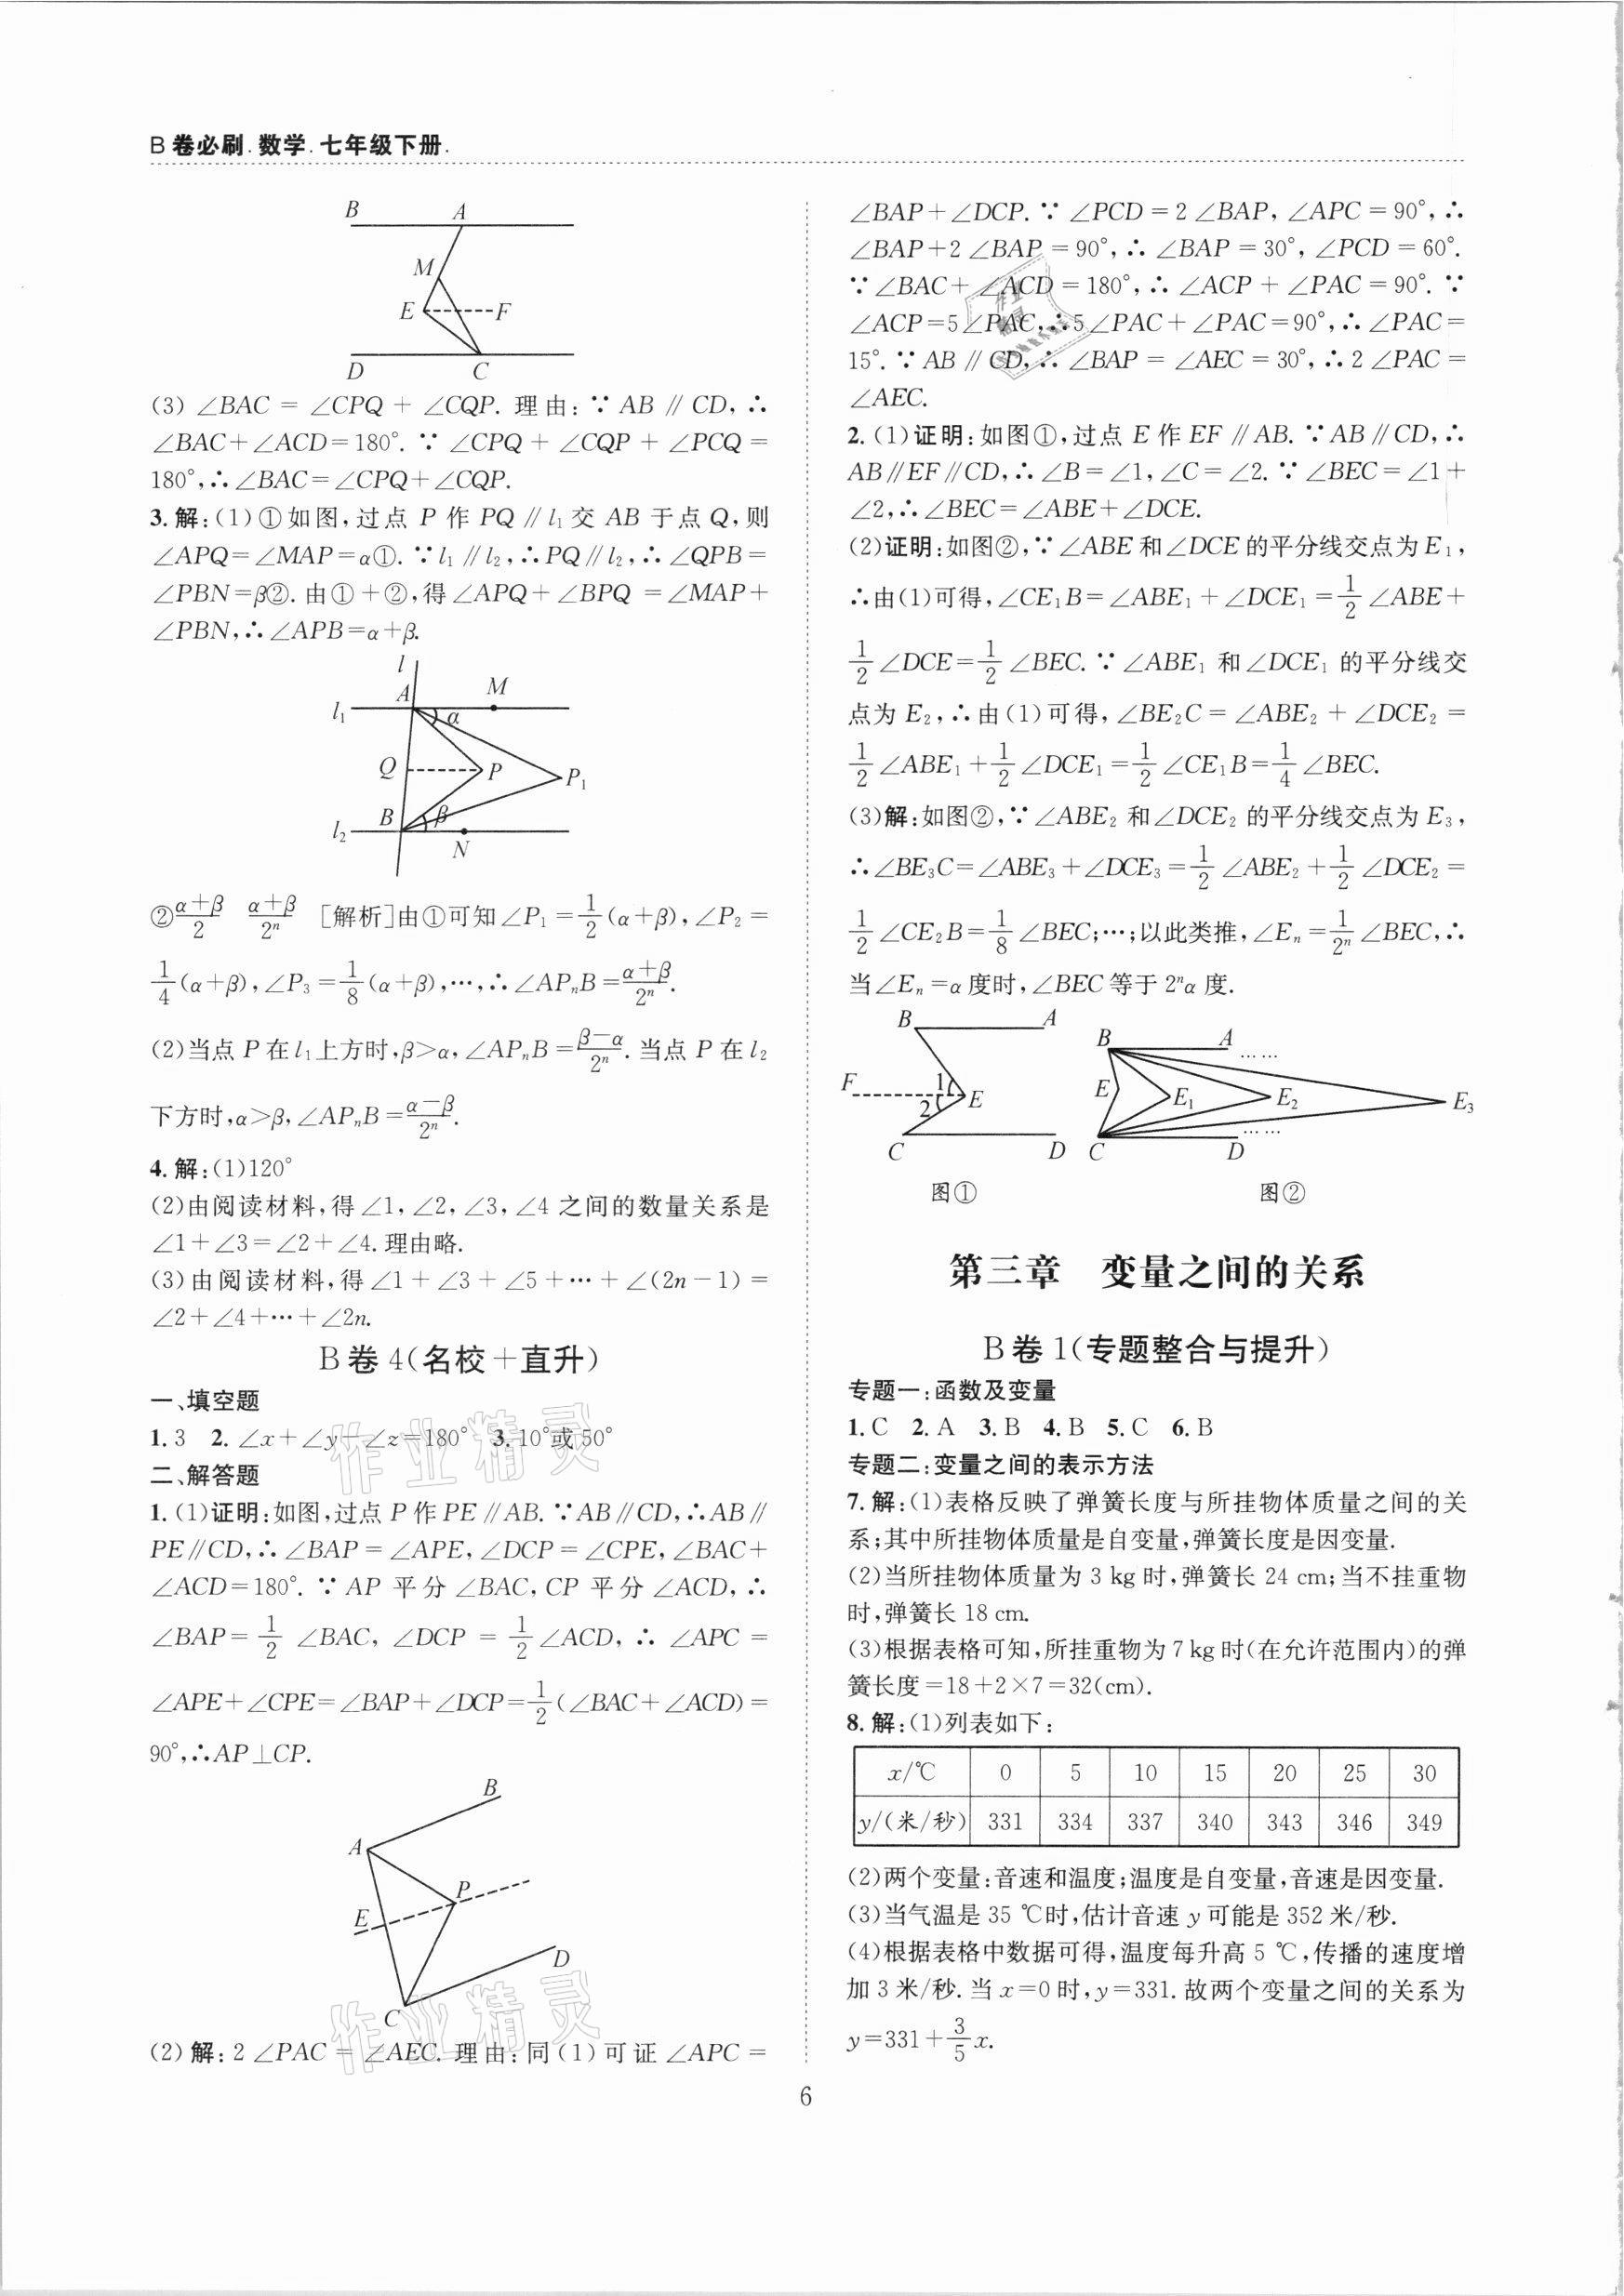 B 卷必刷.数学.七年级下册.
B A
M
E F
D C
(3) ∠BAC = ∠CPQ + ∠CQP. 理由:∵ AB∥CD,∴
∠BAC+∠ACD=180°. ∵ ∠CPQ+∠CQP+∠PCQ=
180°,∴∠BAC=∠CPQ+∠CQP.
3.解:(1)①如图,过点 P 作 PQ∥l₁ 交 AB 于点 Q,则
∠APQ=∠MAP=α①. ∵l₁∥l₂,∴PQ∥l₂,∴∠QPB=
∠PBN=β②. 由①+②,得∠APQ+∠BPQ=∠MAP+
∠PBN,∴∠APB=α+β.
l
A M
l₁ α
Q P P₁
B β
l₂ N
②(α+β)/2 (α+β)/2ⁿ [解析]由①可知∠P₁=1/2(α+β),∠P₂=
1/4(α+β),∠P₃=1/8(α+β),…,∴∠APₙB=(α+β)/2ⁿ.
(2)当点 P 在 l₁ 上方时,β>α,∠APₙB=(β-α)/2ⁿ. 当点 P 在 l₂
下方时,α>β,∠APₙB=(α-β)/2ⁿ.
4.解:(1)120°
(2)由阅读材料,得∠1,∠2,∠3,∠4 之间的数量关系是
∠1+∠3=∠2+∠4.理由略.
(3)由阅读材料,得∠1+∠3+∠5+…+∠(2n-1)=
∠2+∠4+…+∠2n.
B 卷 4(名校+直升)
一、填空题
1.3 2.∠x+∠y-∠z=180° 3.10°或50°
二、解答题
1.(1)证明:如图,过点 P 作 PE∥AB. ∵AB∥CD,∴AB∥
PE∥CD,∴∠BAP=∠APE,∠DCP=∠CPE,∠BAC+
∠ACD=180°. ∵ AP 平分∠BAC,CP 平分∠ACD,∴
∠BAP=1/2∠BAC,∠DCP=1/2∠ACD,∴∠APC=
∠APE+∠CPE=∠BAP+∠DCP=1/2(∠BAC+∠ACD)=
90°,∴AP⊥CP.
B
A
P
E
D
C
(2)解:2∠PAC=∠AEC.理由:同(1)可证∠APC=
∠BAP+∠DCP. ∵ ∠PCD=2∠BAP,∠APC=90°,∴
∠BAP+2∠BAP=90°,∴∠BAP=30°,∠PCD=60°.
∵∠BAC+∠ACD=180°,∴∠ACP+∠PAC=90°. ∵
∠ACP=5∠PAC,∴5∠PAC+∠PAC=90°,∴∠PAC=
15°. ∵AB∥CD,∴∠BAP=∠AEC=30°,∴2∠PAC=
∠AEC.
2.(1)证明:如图①,过点 E 作 EF∥AB. ∵AB∥CD,∴
AB∥EF∥CD,∴∠B=∠1,∠C=∠2. ∵∠BEC=∠1+
∠2,∴∠BEC=∠ABE+∠DCE.
(2)证明:如图②,∵∠ABE和∠DCE的平分线交点为E₁,
∴由(1)可得,∠CE₁B=∠ABE₁+∠DCE₁=1/2∠ABE+
1/2∠DCE=1/2∠BEC. ∵∠ABE₁ 和∠DCE₁ 的平分线交
点为E₂,∴由(1)可得,∠BE₂C=∠ABE₂+∠DCE₂=
1/2∠ABE₁+1/2∠DCE₁=1/2∠CE₁B=1/4∠BEC.
(3)解:如图②,∵∠ABE₂ 和∠DCE₂ 的平分线交点为E₃,
∴∠BE₃C=∠ABE₃+∠DCE₃=1/2∠ABE₂+1/2∠DCE₂=
1/2∠CE₂B=1/8∠BEC;…;以此类推,∠Eₙ=1/2ⁿ∠BEC,∴
当∠Eₙ=α 度时,∠BEC等于2ⁿα 度.
B A
F 1 E
2
C D
图①
B A ……
E E₁ E₂ E₃
C D ……
图②
第三章 变量之间的关系
B 卷 1(专题整合与提升)
专题一:函数及变量
1.C 2.A 3.B 4.B 5.C 6.B
专题二:变量之间的表示方法
7.解:(1)表格反映了弹簧长度与所挂物体质量之间的关
系;其中所挂物体质量是自变量,弹簧长度是因变量.
(2)当所挂物体质量为 3 kg 时,弹簧长 24 cm;当不挂重物
时,弹簧长 18 cm.
(3)根据表格可知,所挂重物为 7 kg 时(在允许范围内)的弹
簧长度=18+2×7=32(cm).
8.解:(1)列表如下:
x/℃ 0 5 10 15 20 25 30
y/(米/秒) 331 334 337 340 343 346 349
(2)两个变量:音速和温度;温度是自变量,音速是因变量.
(3)当气温是 35 ℃时,估计音速 y 可能是 352 米/秒.
(4)根据表格中数据可得,温度每升高 5 ℃,传播的速度增
加 3 米/秒.当 x=0 时,y=331.故两个变量之间的关系为
y=331+3/5x.
6
作业精灵
作业精灵